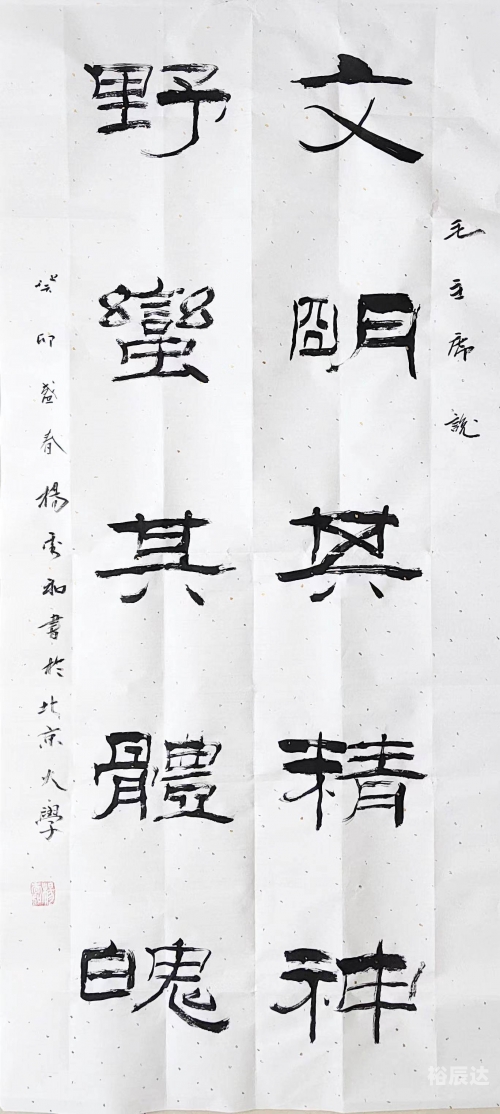 毛主席說
文明其精神
野蠻其體魄
癸卯盛春楊和書於北京大學
裕辰达